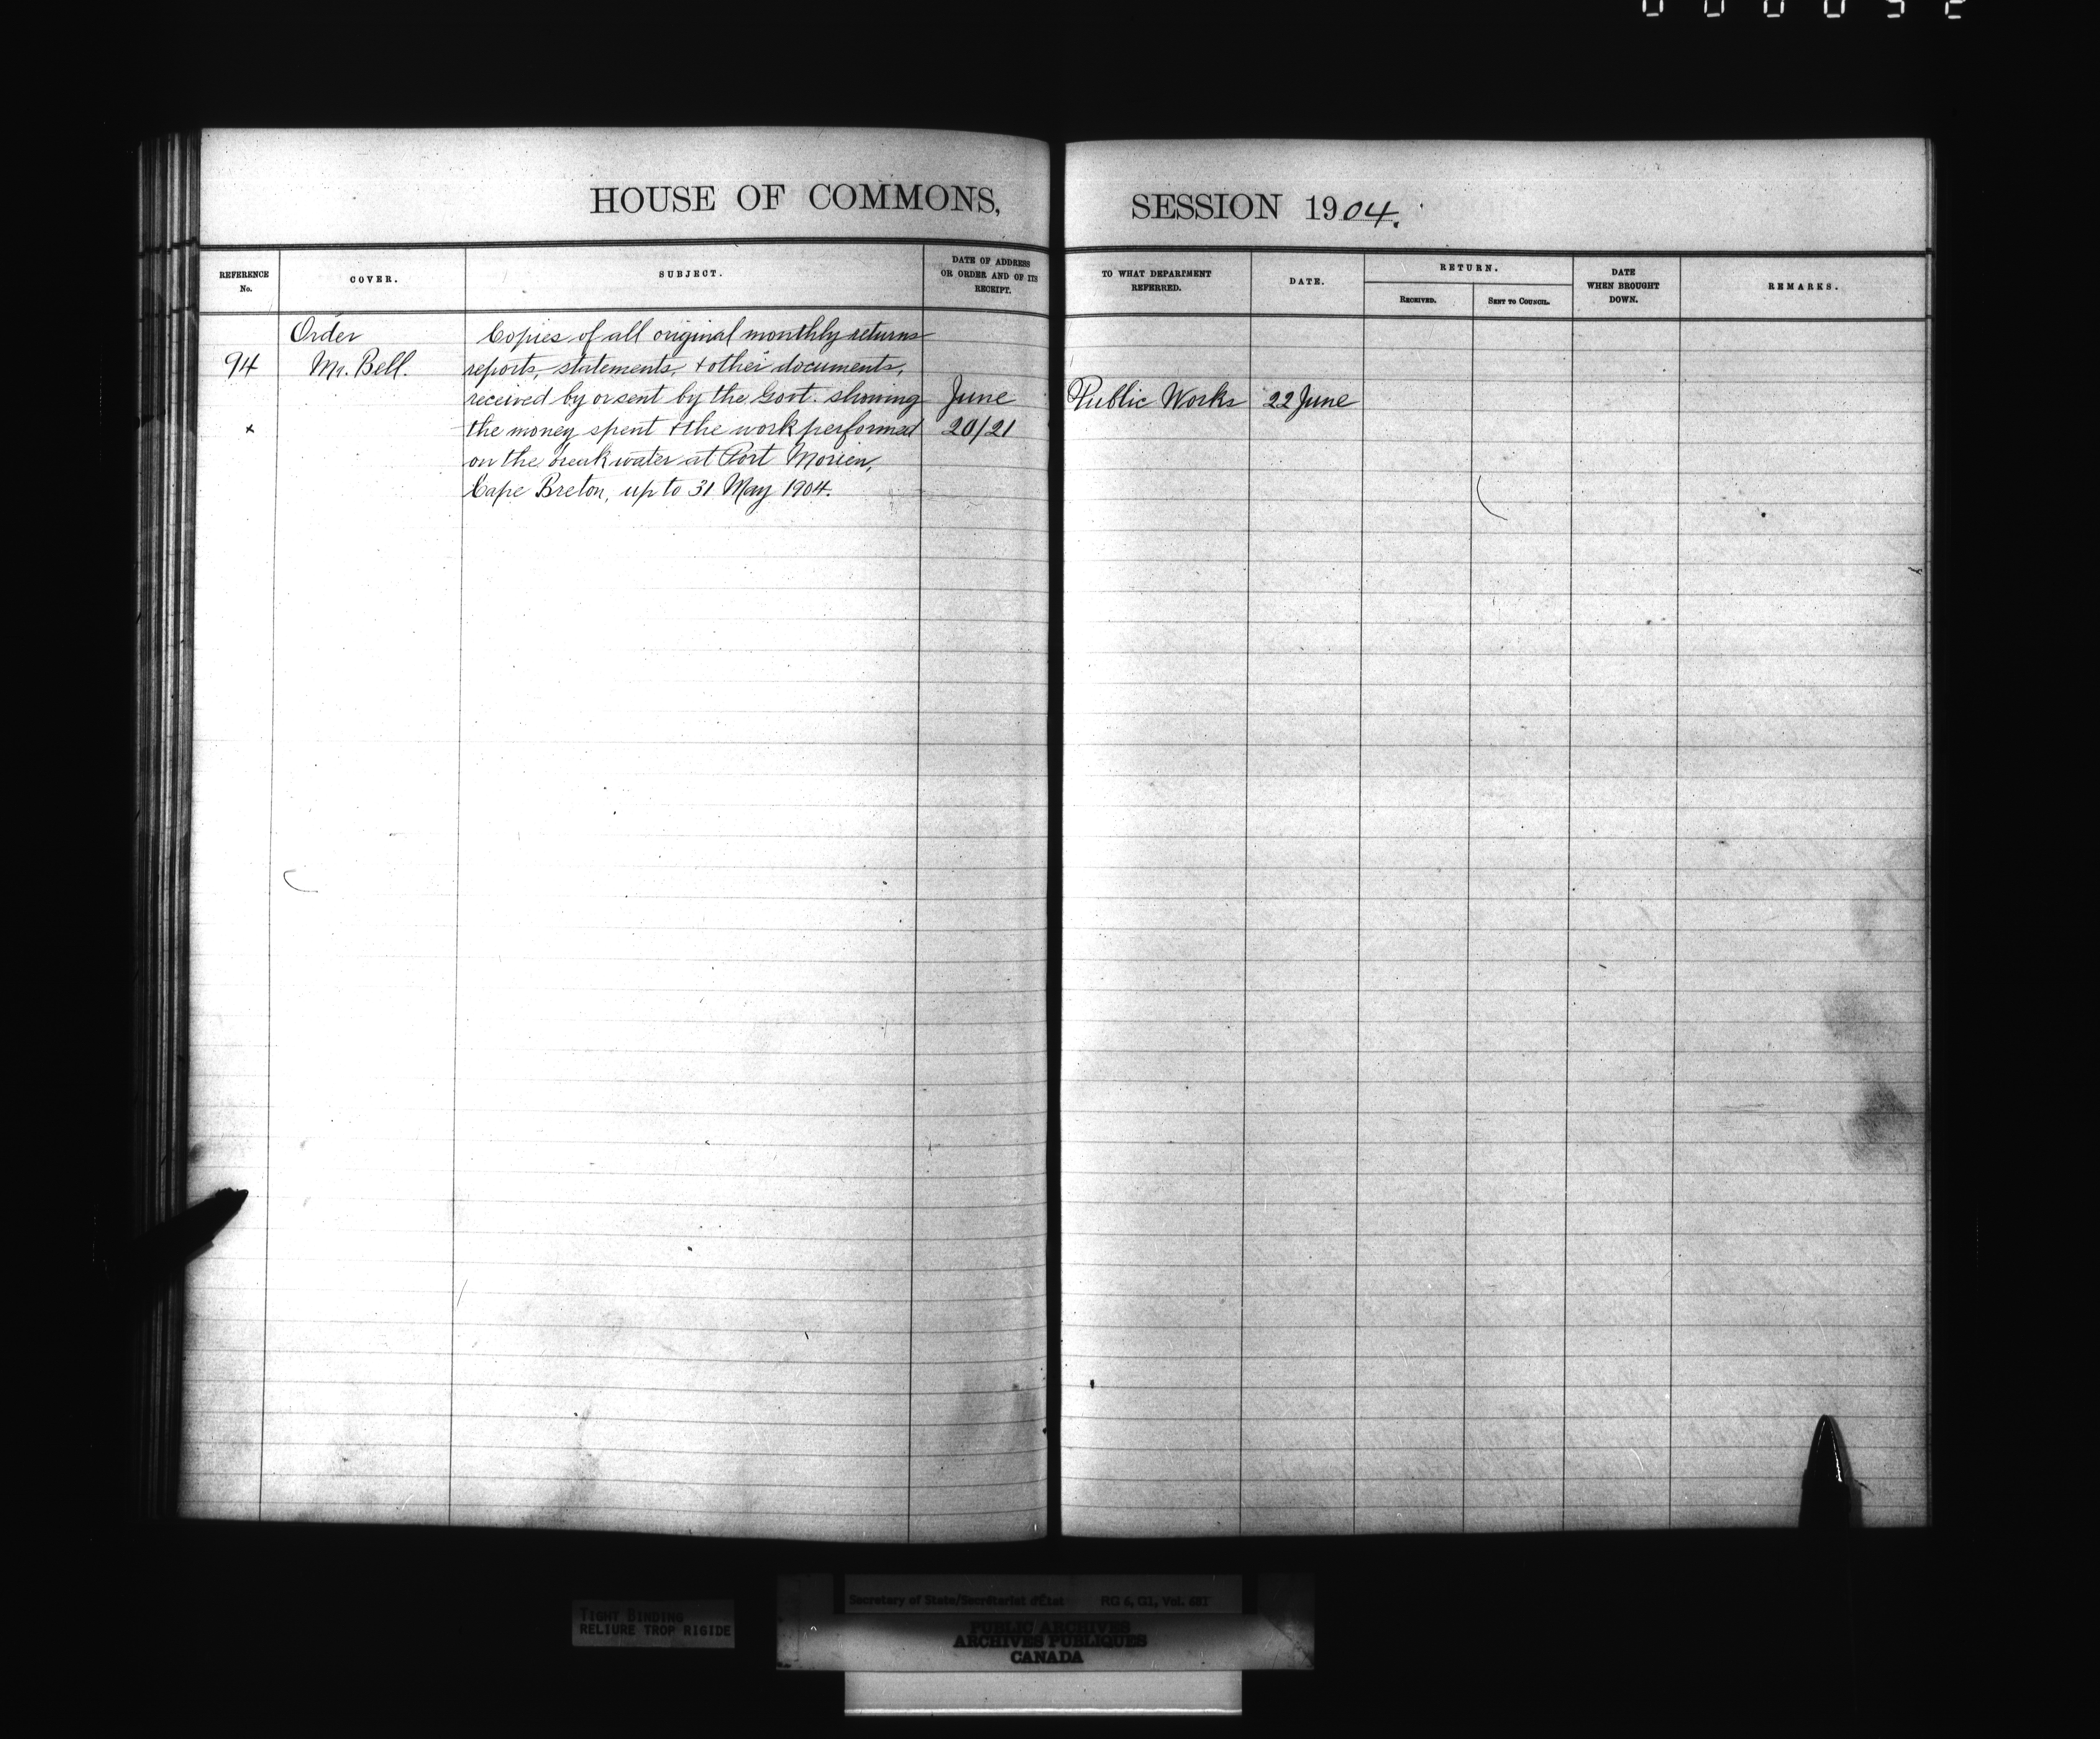 HOUSE OF COMMONS,
SESSION 1904.
REFERENCE No.
COVER.
SUBJECT.
DATE OF ADDRESS OR ORDER AND OF ITS RECEIPT.
TO WHAT DEPARTMENT REFERRED.
DATE.
RETURN.
RECEIVED.
SENT TO COUNCIL.
DATE WHEN BROUGHT DOWN.
REMARKS.
Order
94 Mr. Bell.
x
Copies of all original monthly returns
reports, statements, + other documents,
received by or sent by the Govt. showing
the money spent + the work performed
on the breakwater at Port Morien,
Cape Breton, up to 31 May 1904.
June
20/21
Public Works
22 June
TIGHT BINDING
RELIURE TROP RIGIDE
Secretary of State/Secrétariat d'État RG 6, G1, Vol. 681
PUBLIC ARCHIVES
ARCHIVES PUBLIQUES
CANADA